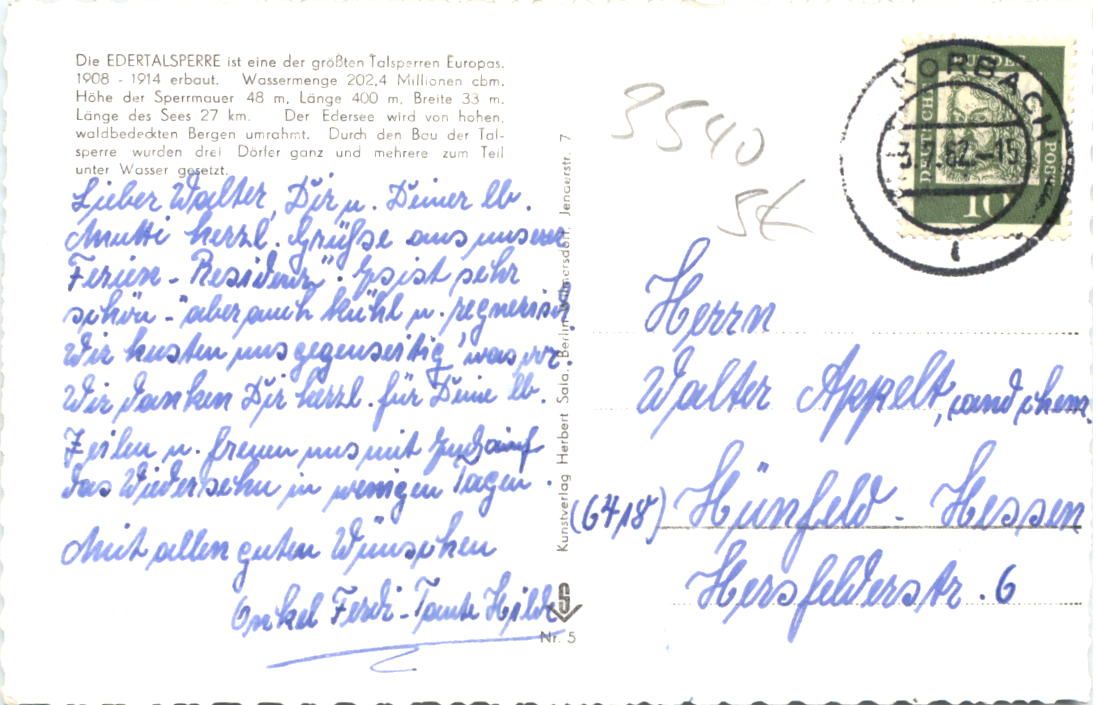 Die EDERTALSPERRE ist eine der größten Talsperren Europas.
1908 - 1914 erbaut. Wassermenge 202,4 Millionen cbm.
Höhe der Sperrmauer 48 m, Länge 400 m, Breite 33 m.
Länge des Sees 27 km. Der Edersee wird von hohen,
waldbedeckten Bergen umrahmt. Durch den Bau der Tal-
sperre wurden drei Dörfer ganz und mehrere zum Teil
unter Wasser gesetzt.
Lieber Walter, Dir u. Deiner lb.
Mutti herzl. Grüße aus unserer
Ferien-Residenz". Es ist sehr
schön - aber auch kühl u. regnerisch.
Wir husten uns gegenseitig was vor.
Wir danken Dir herzl. für Deine lb.
Zeilen u. freuen uns mit Euch auf
das Wiedersehn in wenigen Tagen.
Mit allen guten Wünschen
Onkel Ferdi - Tante Hilde
Kunstverlag Herbert Sala, Berlin-Wilmersdorf, Jenaerstr. 7
Nr. 5
3540
5€
KORBACH
62.-15
DEUTSCHE
BUNDES
POST
10
Herrn
Walter Appelt,
(6418) Hünfeld - Hessen
Hersfelderstr. 6